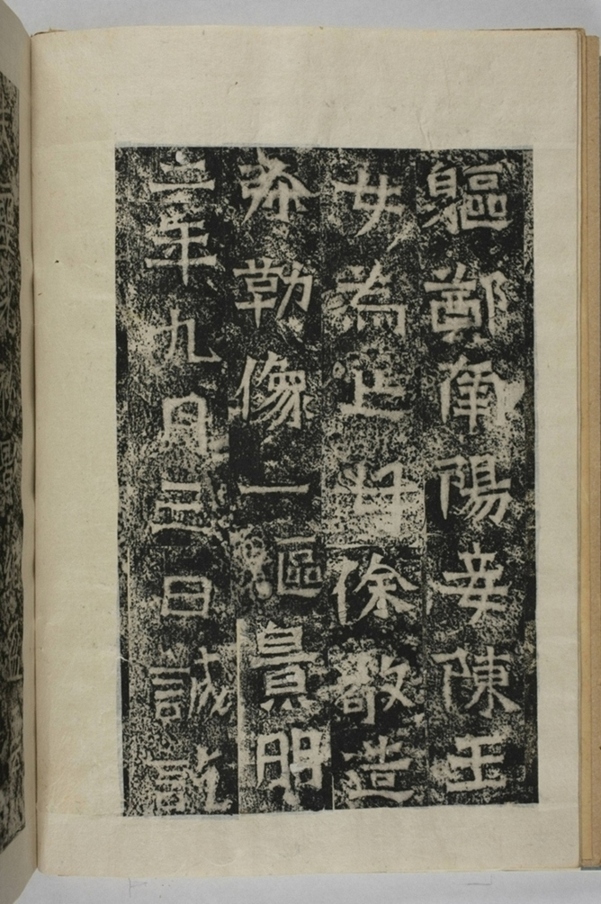 軀鄭南陽妾陳玉
女為亡母徐敬造
弥勒像一軀景明
三年九月三日誠訖